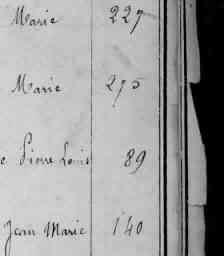 Marie 227
Marie 275
e Pierre Louis 89
Jean Marie 140